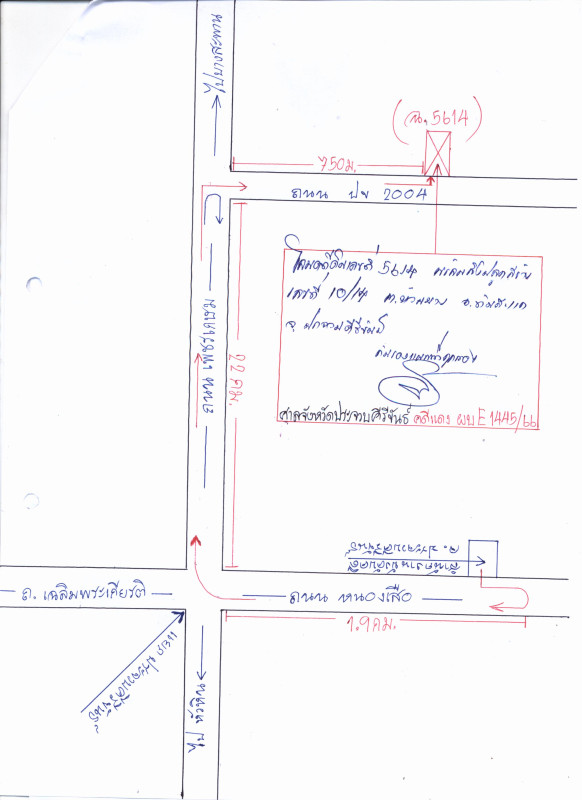 ไปบางสะพาน
(ฉ. 5614)
750ม.
ถนน ปข 2004
ถนน เพชรเกษม
22 คม.
โฉนดที่ดินเลขที่ 5614
เลขที่ 10/14
ศาลจังหวัดประจวบคีรีขันธ์ คดีแดง ผบ E 1445/66
สำนักงานบังคับคดี
จ. ประจวบคีรีขันธ์
ถ. เฉลิมพระเกียรติ
ถนน หนองเสือ
1.9 คม.
ประจวบคีรีขันธ์
ไป หัวหิน